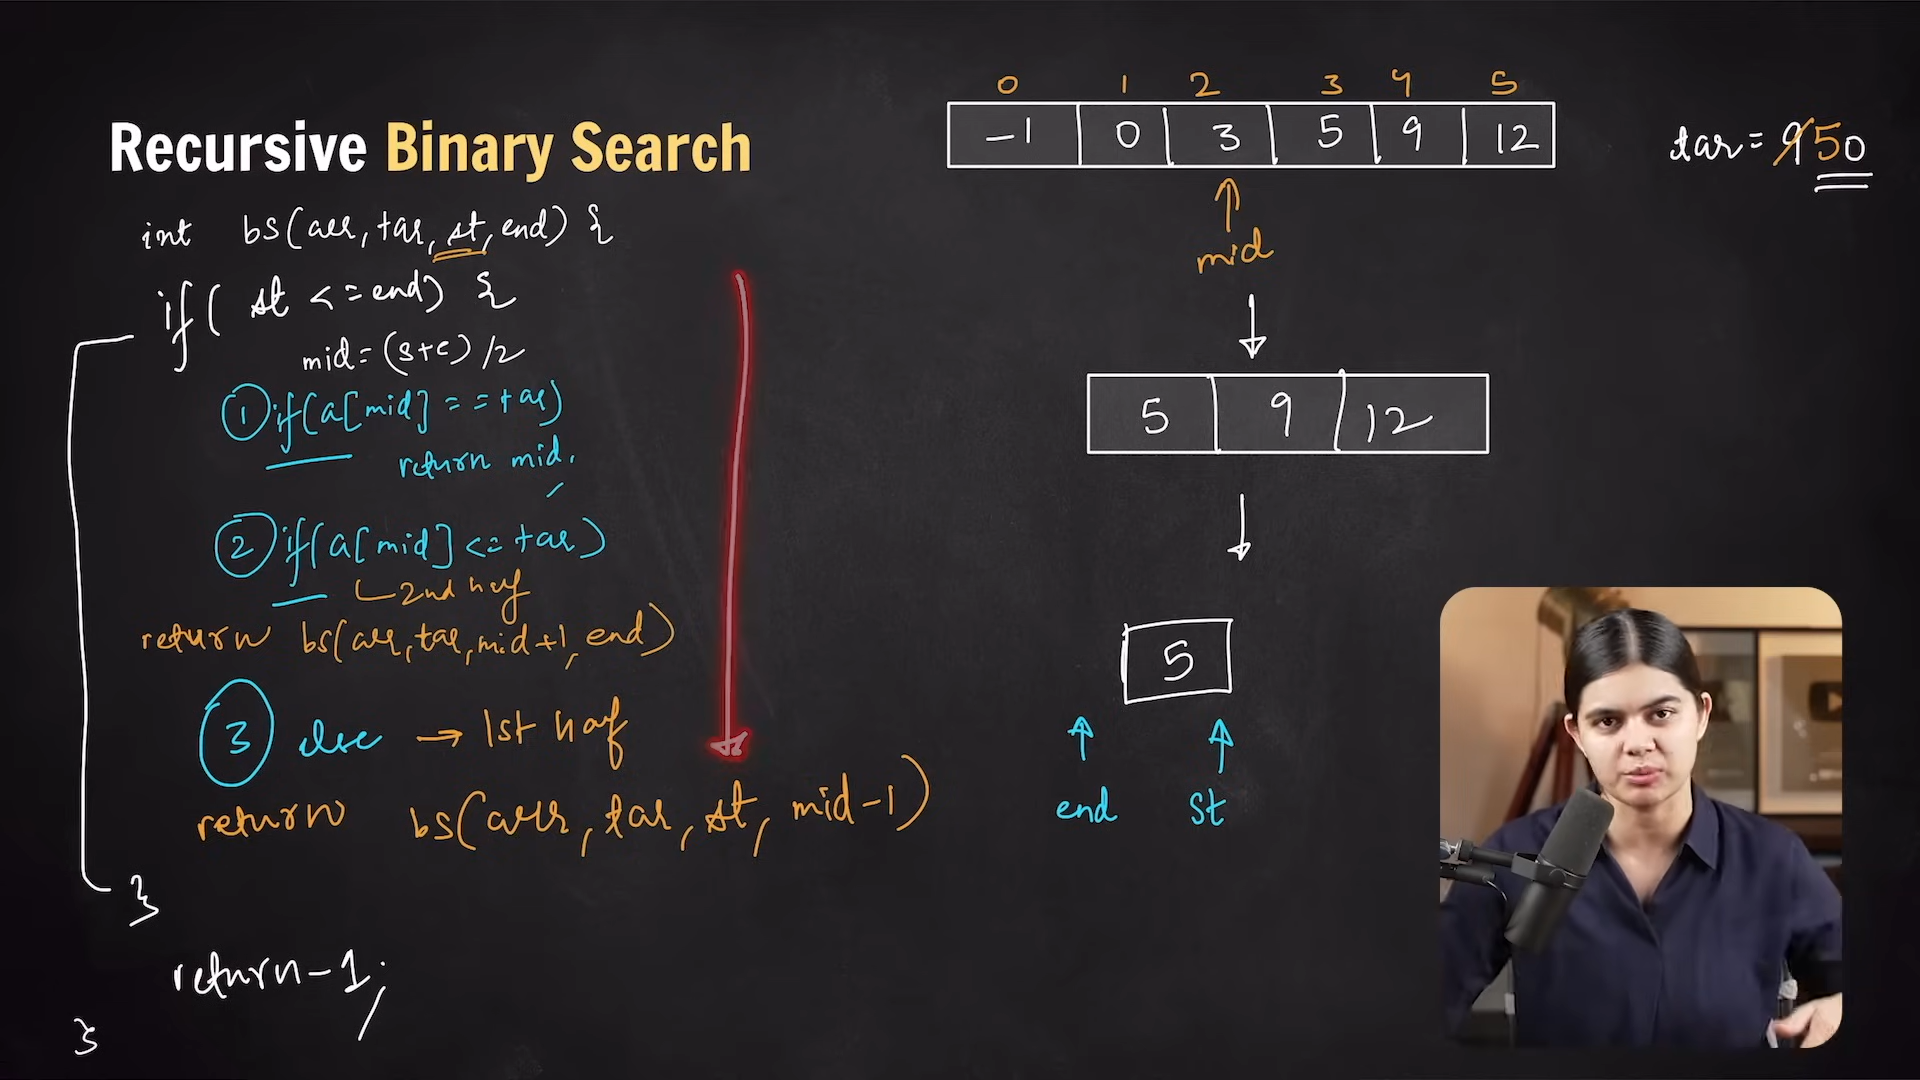 Recursive Binary Search
int bs(arr, tar, st, end) {
if( st <= end) {
mid = (s+e) /2
① if(a[mid] == tar)
return mid,
② if(a[mid] <= tar)
2nd half
return bs(arr, tar, mid+1, end)
③ else → 1st half
return bs(arr, tar, st, mid-1)
}
return -1;
}
0 1 2 3 4 5
-1 0 3 5 9 12
mid
tar = 9 50
5 9 12
5
end st